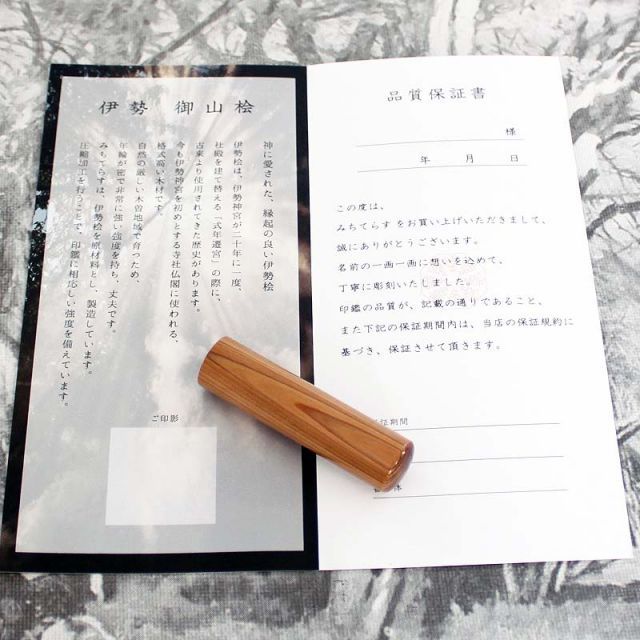 伊勢 御山桧
神に愛された、縁起の良い伊勢桧
伊勢桧は、伊勢神宮が二十年に一度、
社殿を建て替える「式年遷宮」の際に、
古来より使用されてきた歴史があります。
今も伊勢神宮を初めとする寺社仏閣に使われる、
格式高い木材です。
自然の厳しい木曽地域で育つため、
年輪が密で非常に強い強度を持ち、丈夫です。
みちてらすは、伊勢桧を原材料とし、製造しています。
圧縮加工を行うことで、印鑑に相応しい強度を備えています。
ご印影
品質保証書
様
年 月 日
この度は、
みちてらす をお買い上げいただきまして、
誠にありがとうございます。
名前の一画一画に想いを込めて、
丁寧に彫刻いたしました。
印鑑の品質が、記載の通りであること、
また下記の保証期間内は、当店の保証規約に
基づき、保証させて頂きます。
証期間
体